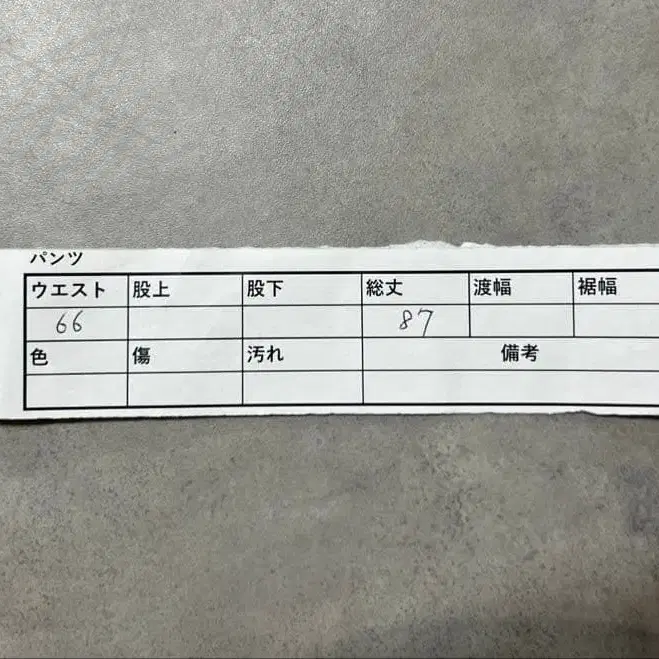 パンツ
ウエスト 股上 股下 総丈 渡幅 裾幅
66 87
色 傷 汚れ 備考